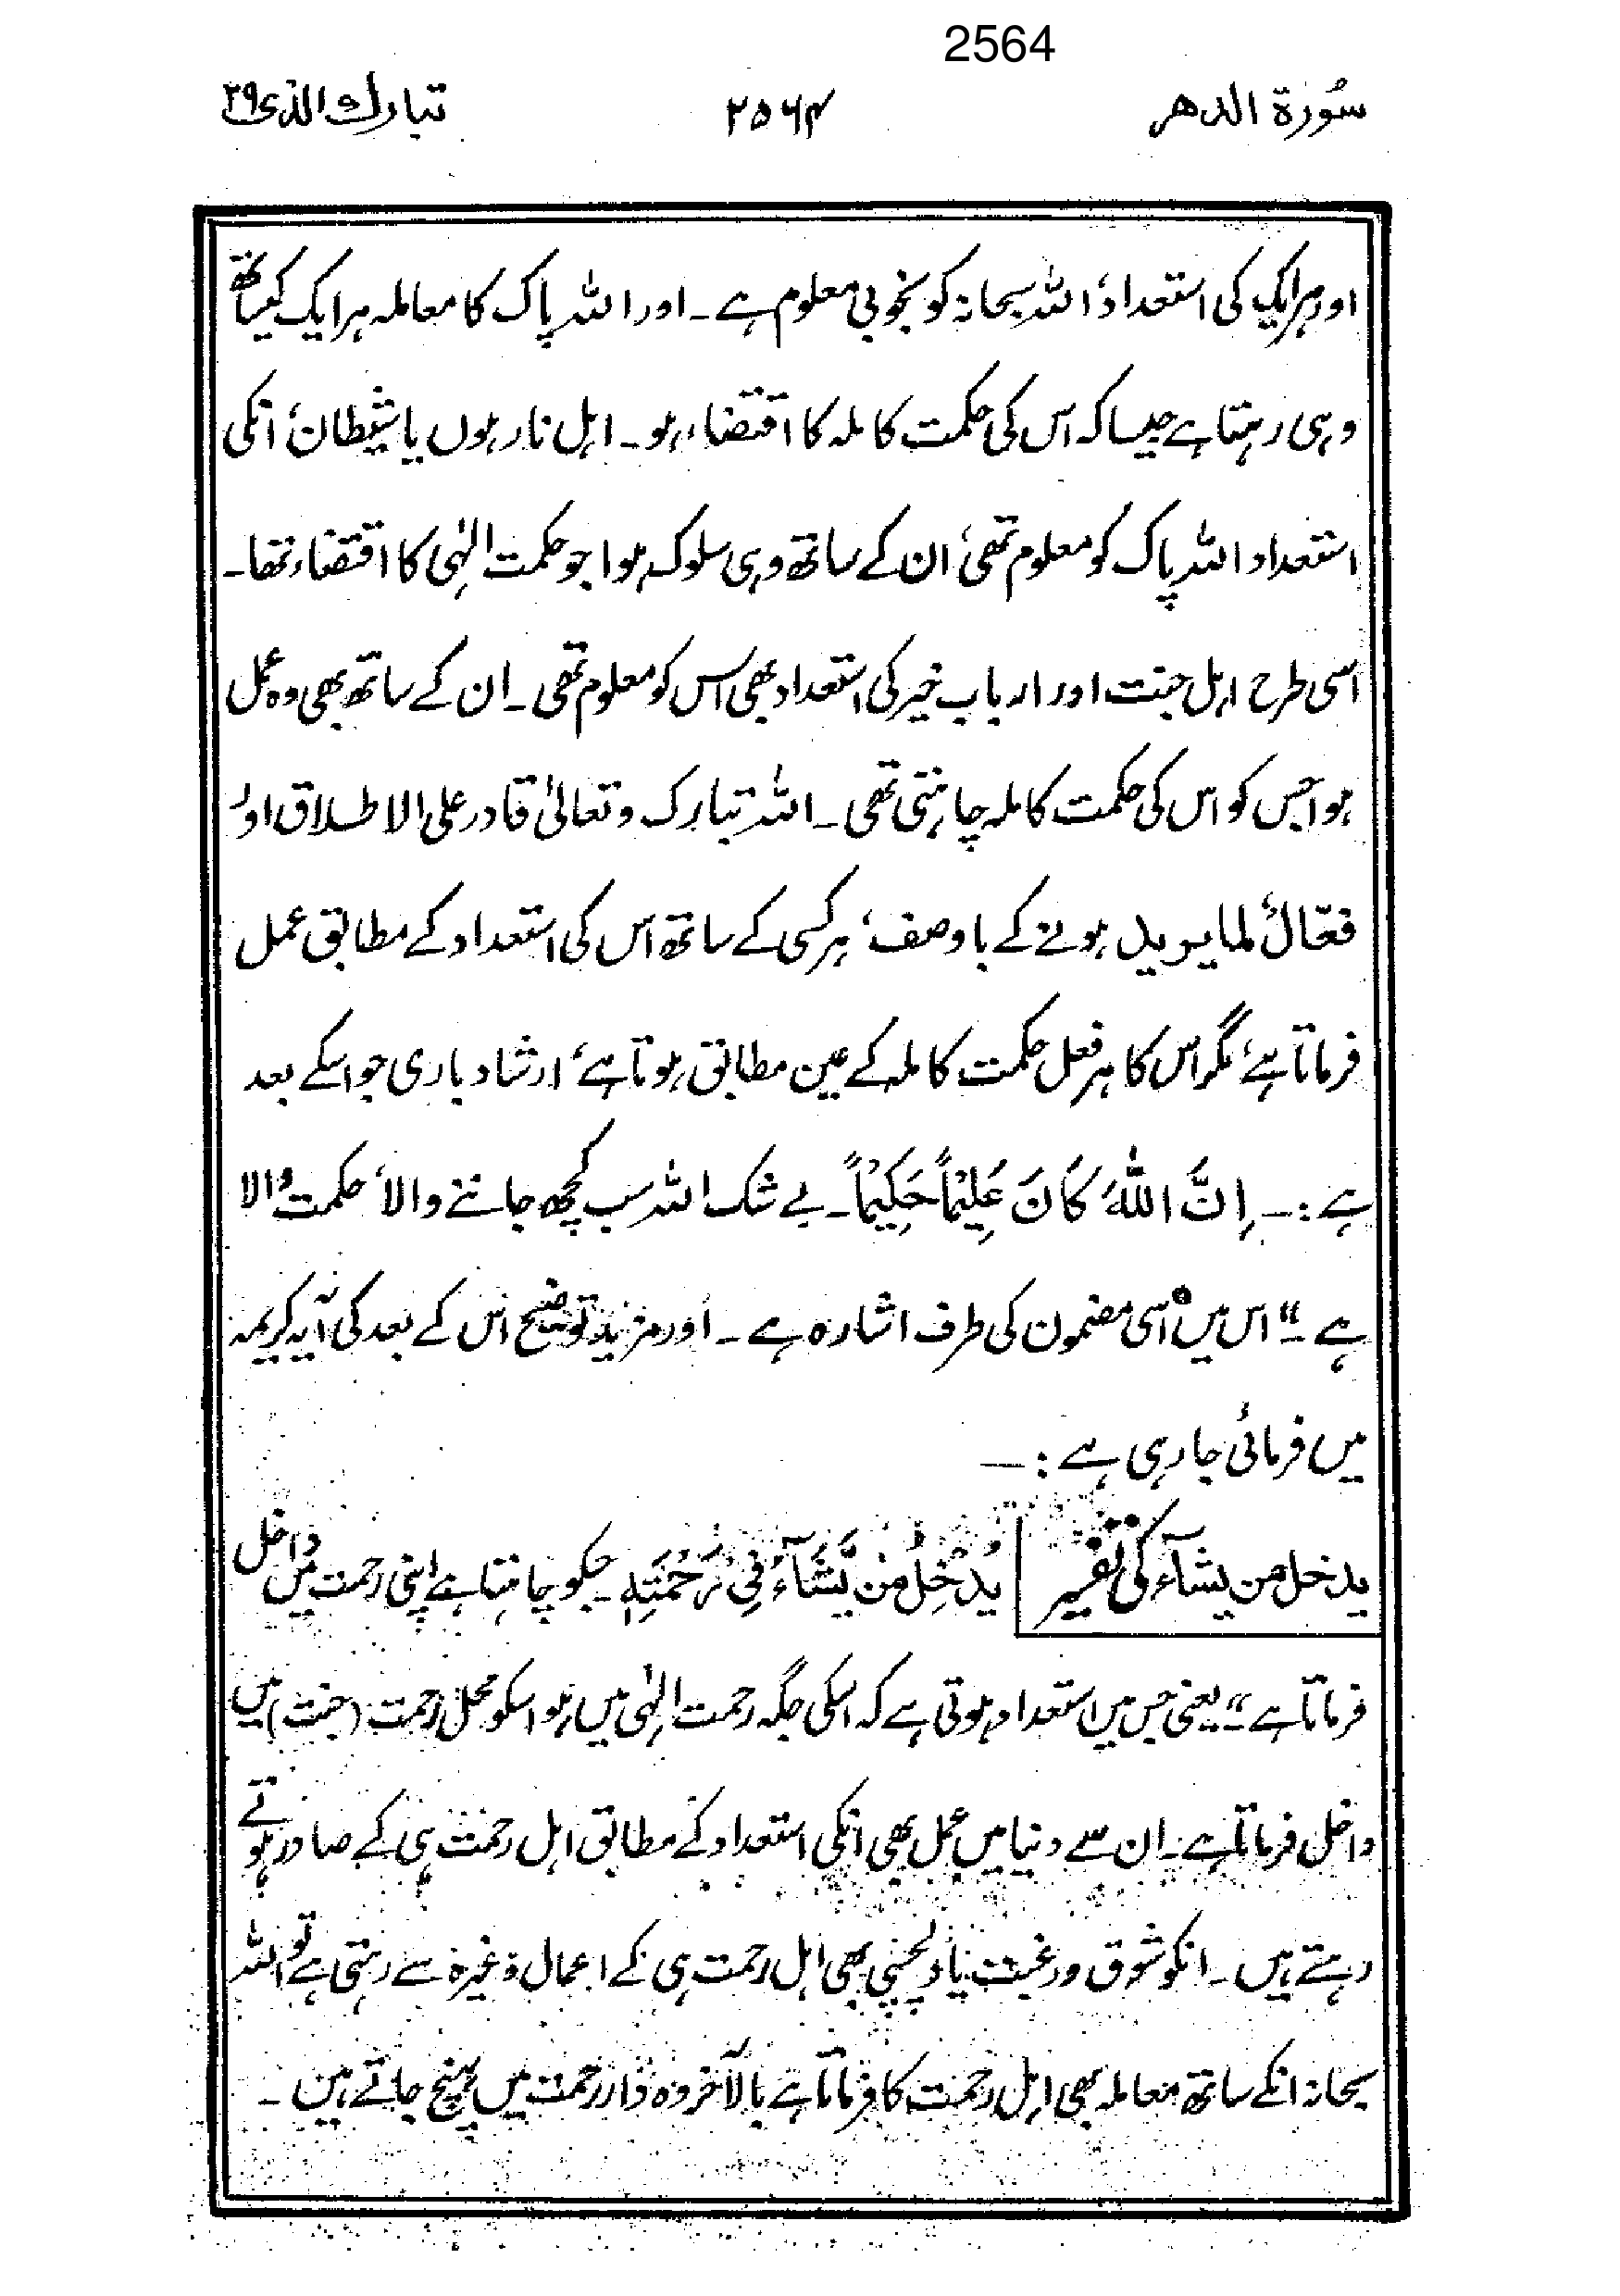 2564
سُورة الدهر ۲۵۶۴ تبارك الذی ۲۹
اور ہر ایک کی استعداد، اللہ سبحانہ کو بخوبی معلوم ہے۔ اور اللہ پاک کا معاملہ ہر ایک کیساتھ
وہی رہتا ہے جیسا کہ اس کی حکمت کاملہ کا اقتضاء ہو۔ اہل نار ہوں یا شیطان، انکی
استعداد اللہ پاک کو معلوم تھی، ان کے ساتھ وہی سلوک ہوا جو حکمت الٰہی کا اقتضاء تھا۔
اسی طرح اہل جنت اور ارباب خیر کی استعداد بھی اس کو معلوم تھی۔ ان کے ساتھ بھی وہ عمل
ہوا جس کو اس کی حکمت کاملہ چاہتی تھی۔ اللہ تبارک و تعالیٰ قادر علی الاطلاق اور
فعّالٌ لما یرید ہونے کے باوصف، ہر کسی کے ساتھ اس کی استعداد کے مطابق عمل
فرماتا ہے، مگر اس کا ہر فعل حکمت کاملہ کے عین مطابق ہوتا ہے، ارشاد باری جو اسکے بعد
ہے :۔ اِنَّ اللّٰهَ كَانَ عَلِيْمًا حَكِيْمًا۔ بے شک اللہ سب کچھ جاننے والا، حکمت والا
ہے۔“ اس میں اسی مضمون کی طرف اشارہ ہے۔ اور مزید توضیح اس کے بعد کی آیہ کریمہ
میں فرمائی جا رہی ہے :۔
یدخل من یشآء کی تفسیر يُدْخِلُ مَنْ يَّشَآءُ فِيْ رَحْمَتِهٖ۔ جسکو چاہتا ہے اپنی رحمت میں داخل
فرماتا ہے۔“ یعنی جس میں استعداد ہوتی ہے کہ اسکی جگہ رحمت الٰہی میں ہو اسکو محل رحمت (جنت) میں
داخل فرماتا ہے۔ ان سے دنیا میں عمل بھی انکی استعداد کے مطابق اہل رحمت ہی کے صادر ہوتے
رہتے ہیں۔ انکو شوق و رغبت یا دلچسپی بھی اہل رحمت ہی کے اعمال وغیرہ سے رہتی ہے تو اللہ
سبحانہ انکے ساتھ معاملہ بھی اہل رحمت کا فرماتا ہے بالآخر وہ دار رحمت میں پہنچ جاتے ہیں۔